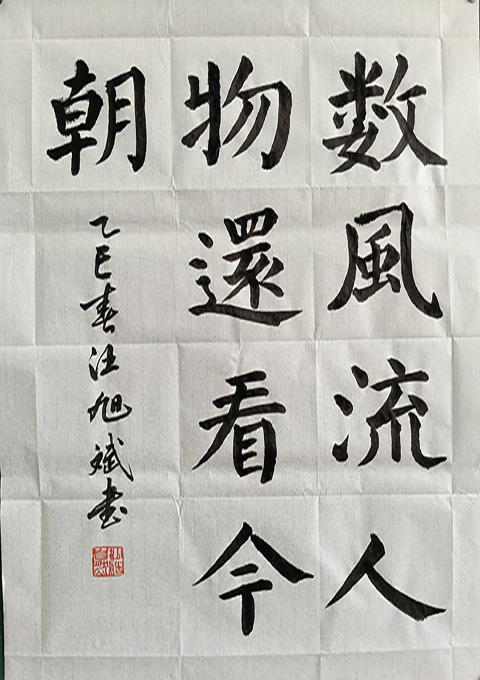 数風流人
物還看今
朝
乙巳春汪旭斌書